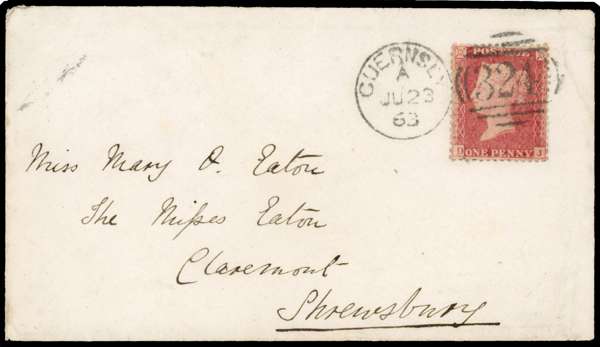 GUERNSEY
A
JU 23
63
POSTAGE
324
ONE PENNY
Miss Mary O. Eaton
The Misses Eaton
Claremont
Shrewsbury